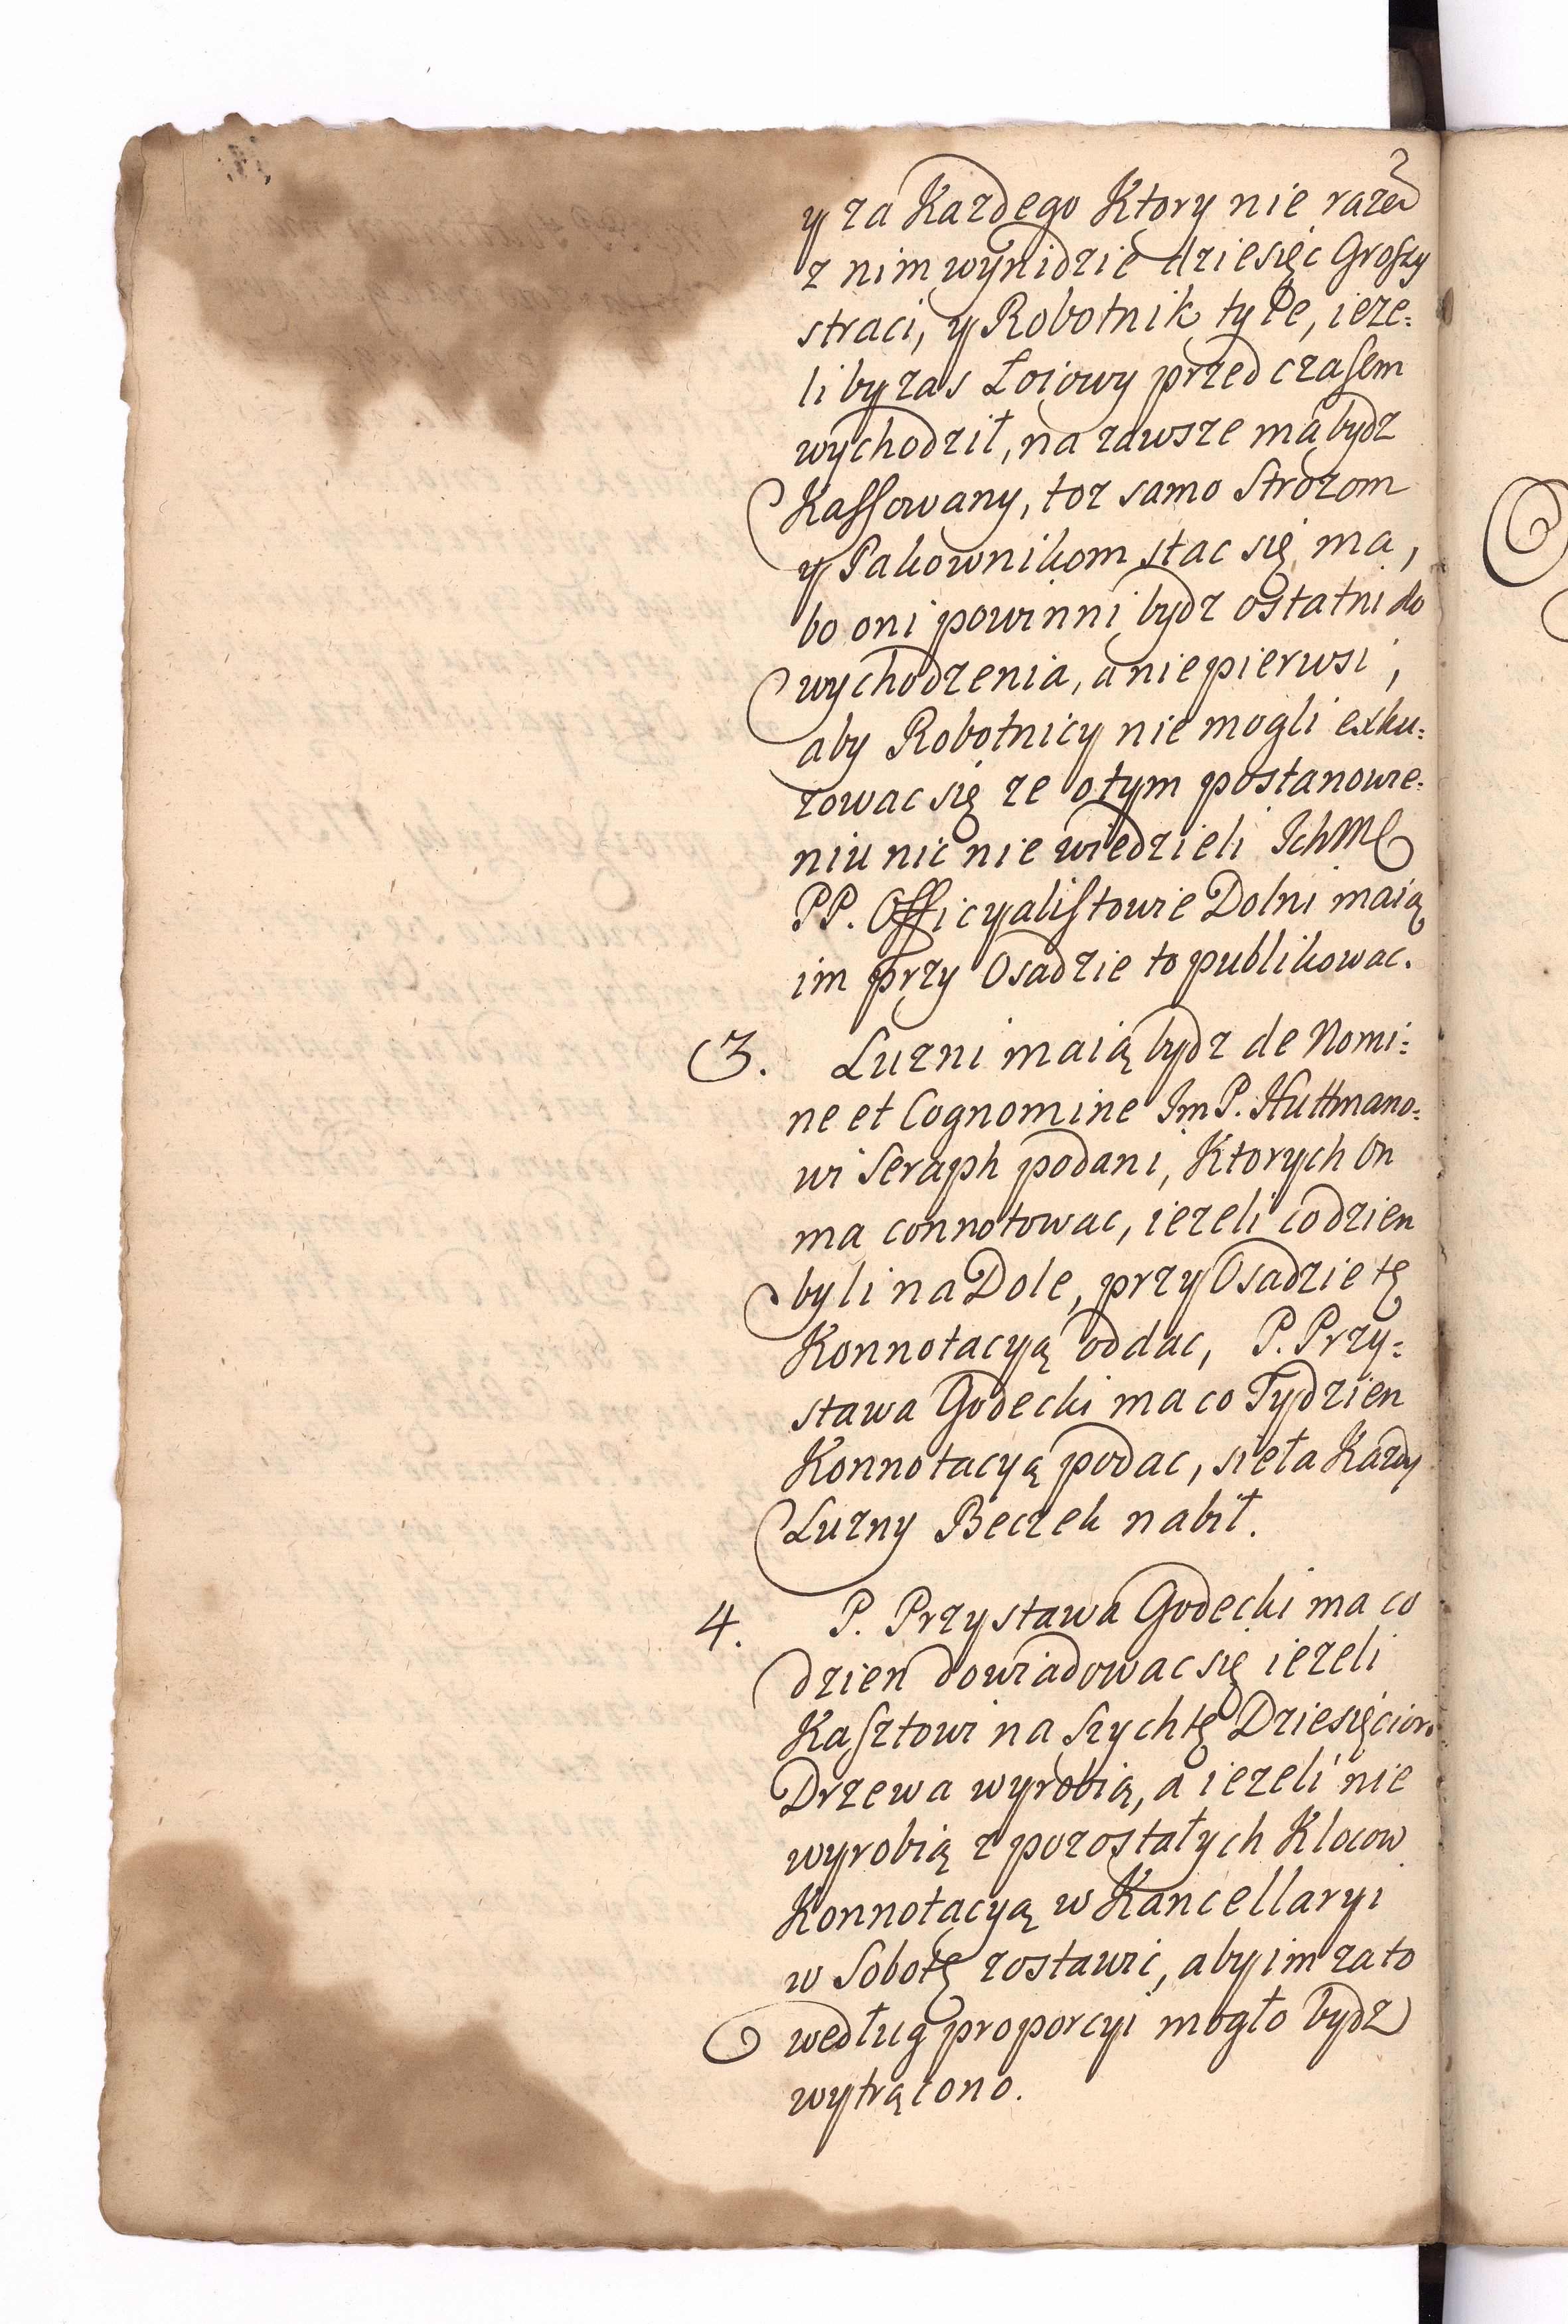 y za Kazdego Ktory nie razem
z nim wynidzie dziesięc Groszy
straci, y Robotnik tyle, ieze:
liby zas Łoiowy przed czasem
wychodził, na zawsze ma bydz
Kassowany, toz samo Strozom
y Pakownikom stac się ma,
bo oni powinni bydz ostatni do
wychodzenia, a nie pierwsi,
aby Robotnicy nie mogli exku:
zowac się ze o tym postanowie:
niu nic nie wiedzieli Ichmć
PP. Officyalistowie Dolni maią
im przy Osadzie to publikowac.
3. Luzni maią bydz de Nomi:
ne et Cognomine ImP. Huttmano:
wi Seraph podani, Ktorych On
ma connotowac, iezeli codzien
byli na Dole, przy Osadzie tę
Konnotacyą oddac, P. Przy:
stawa Godecki ma co Tydzien
Konnotacyą podac, sieła Kazdy
Luzny Beczek nabił.
4. P. Przystawa Godecki ma co
dzien dowiadowac się iezeli
Kasztowi na Szychtę Dziesięcioro
Drzewa wyrobią, a iezeli nie
wyrobią z pozostałych Klocow
Konnotacyą w Kancellaryi
w Sobotę zostawic, aby im za to
według proporcyi mogło bydz
wytrącono.